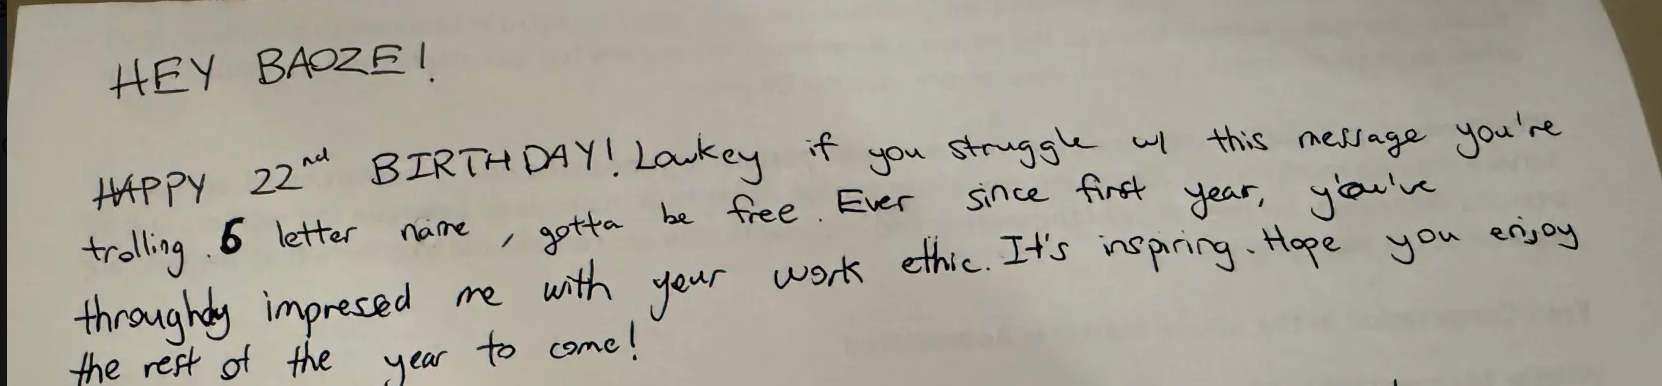 HEY BAOZE!
HAPPY 22nd BIRTHDAY! Lowkey if you struggle w/ this message you're
trolling. 6 letter name, gotta be free. Ever since first year, you've
throughly impressed me with your work ethic. It's inspiring. Hope you enjoy
the rest of the year to come!